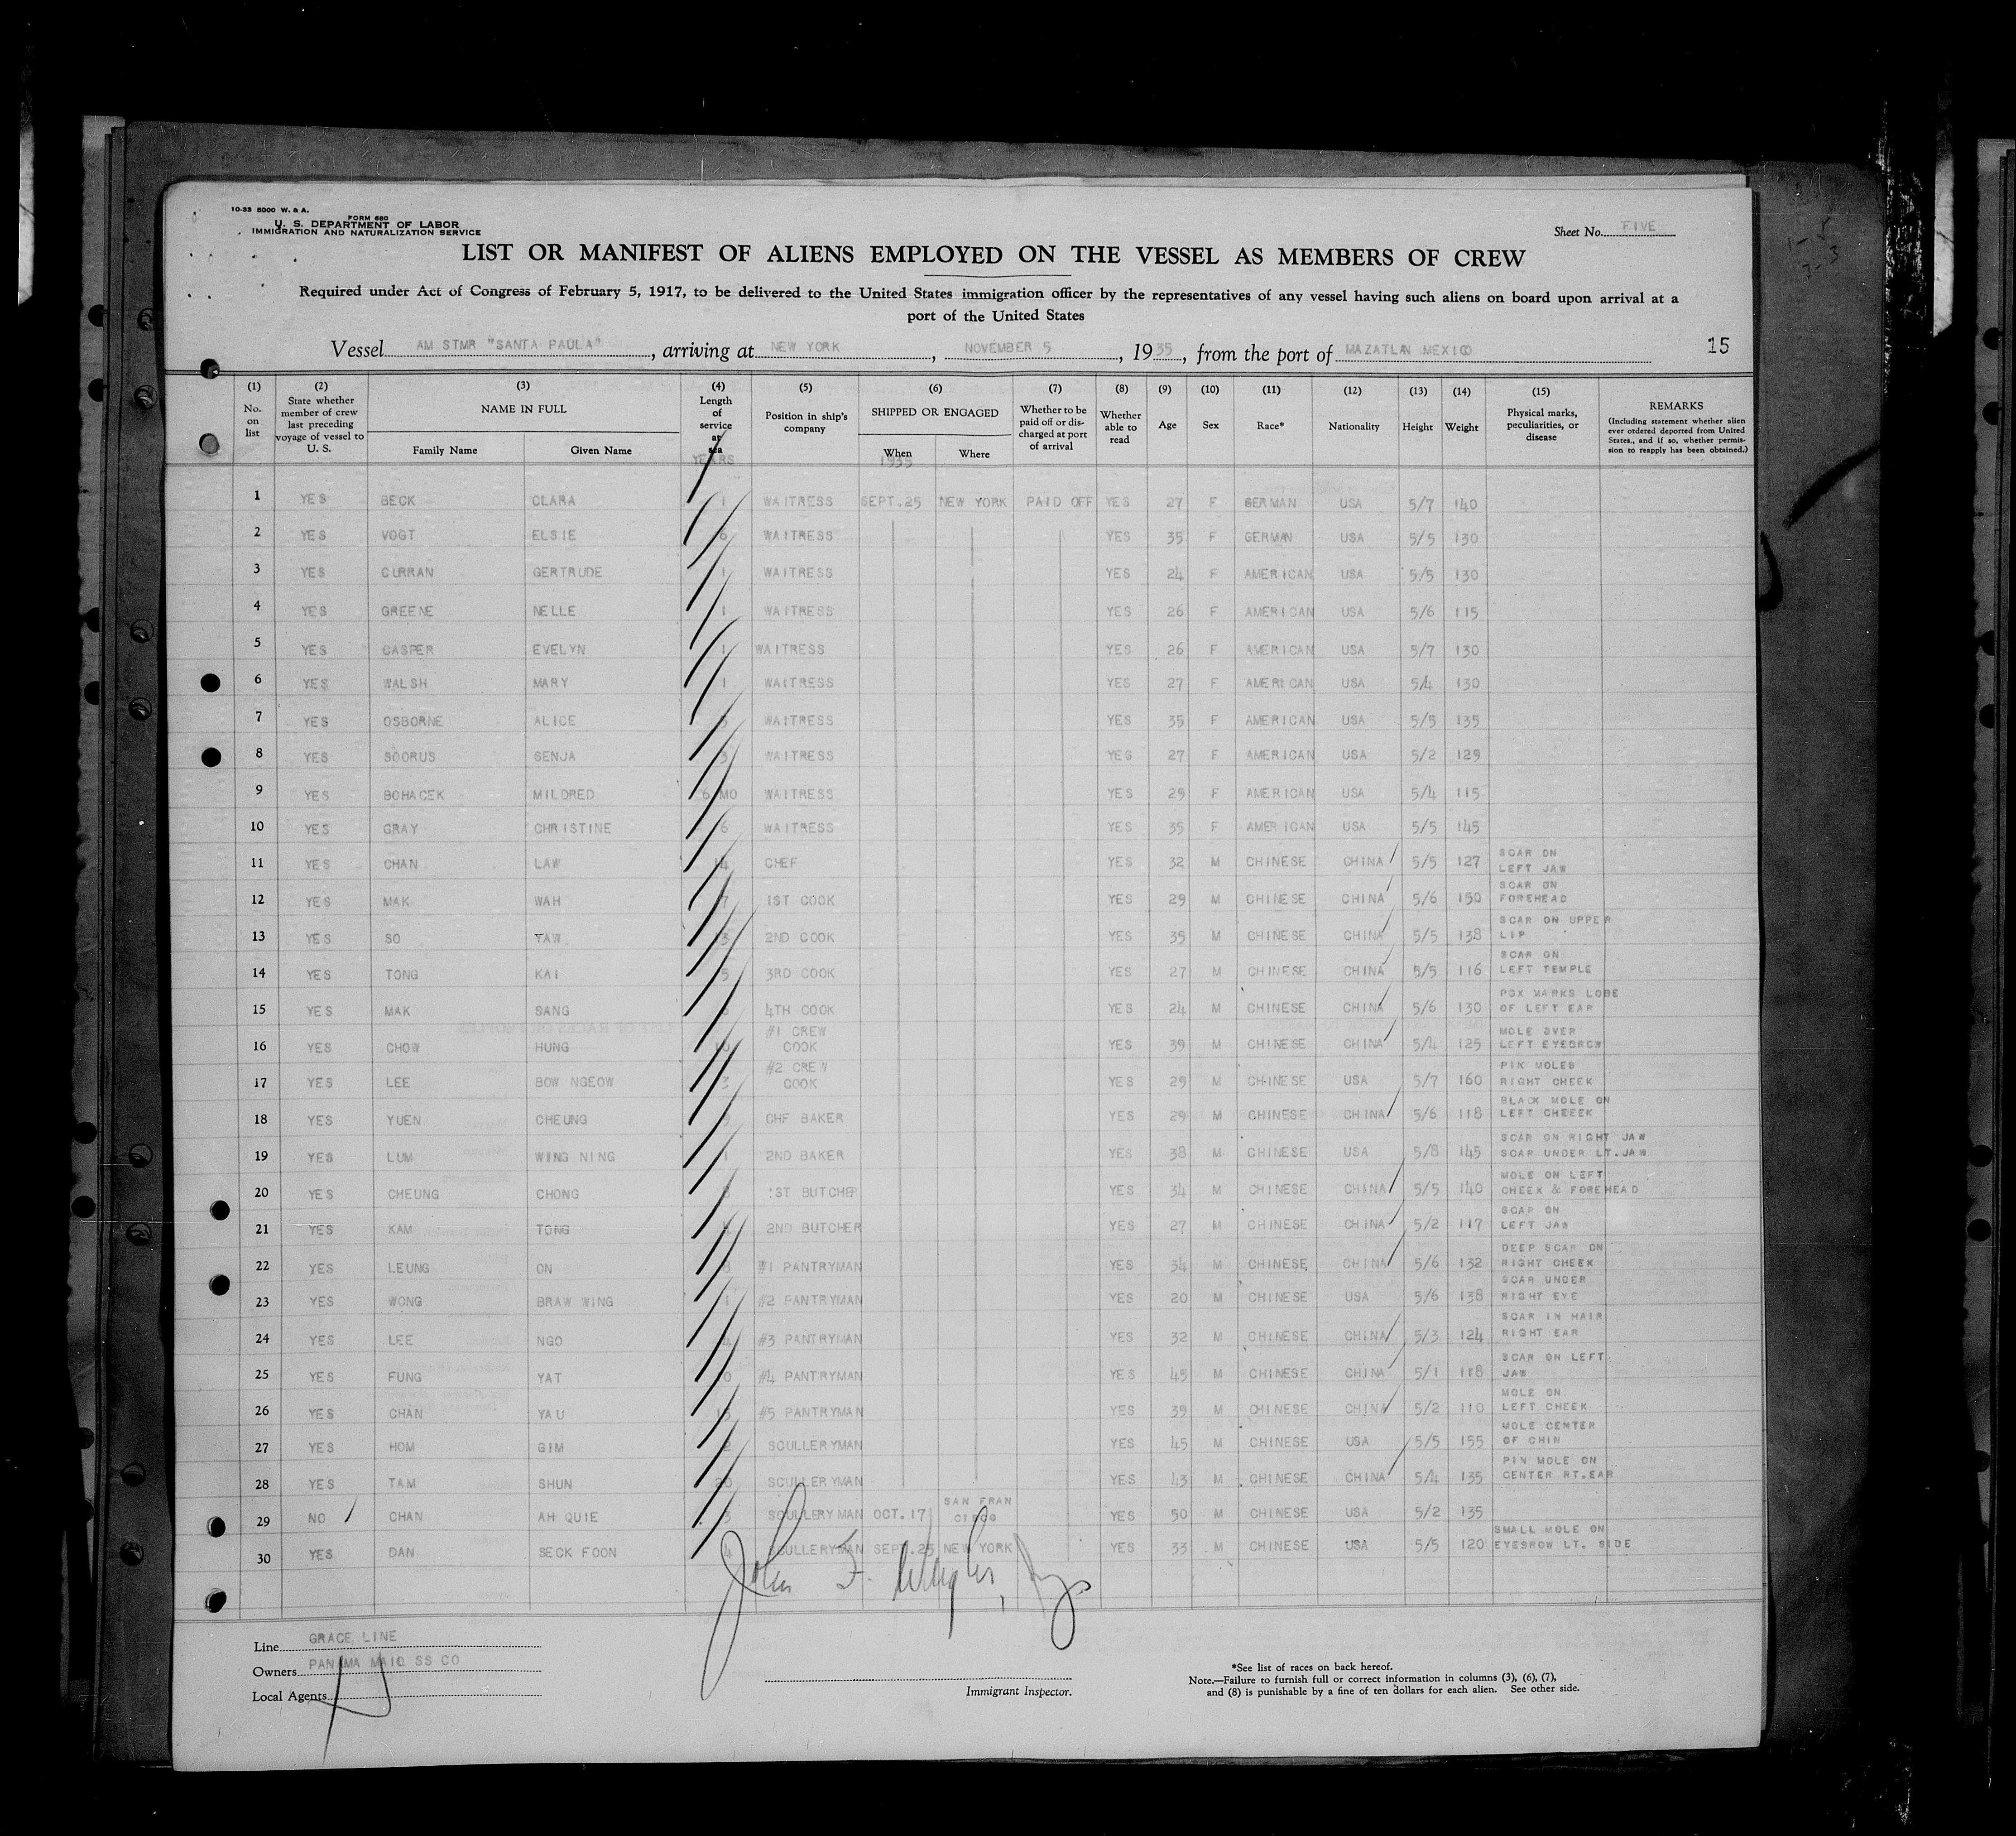 10-33 5000 W. & A.
FORM 680
U. S. DEPARTMENT OF LABOR
IMMIGRATION AND NATURALIZATION SERVICE
Sheet No. FIVE
LIST OR MANIFEST OF ALIENS EMPLOYED ON THE VESSEL AS MEMBERS OF CREW
Required under Act of Congress of February 5, 1917, to be delivered to the United States immigration officer by the representatives of any vessel having such aliens on board upon arrival at a
port of the United States
Vessel AM STMR "SANTA PAULA", arriving at NEW YORK, NOVEMBER 5, 1935, from the port of MAZATLAN MEXICO 15
(1) No. on list
(2) State whether member of crew last preceding voyage of vessel to U. S.
(3) NAME IN FULL Family Name Given Name
(4) Length of service at sea YEARS
(5) Position in ship's company
(6) SHIPPED OR ENGAGED When Where 1935
(7) Whether to be paid off or discharged at port of arrival
(8) Whether able to read
(9) Age
(10) Sex
(11) Race*
(12) Nationality
(13) Height
(14) Weight
(15) Physical marks, peculiarities, or disease
REMARKS (Including statement whether alien ever ordered deported from United States, and if so, whether permission to reapply has been obtained.)
1 YES BECK CLARA 1 WAITRESS SEPT.25 NEW YORK PAID OFF YES 27 F GERMAN USA 5/7 140
2 YES VOGT ELSIE 6 WAITRESS YES 35 F GERMAN USA 5/5 130
3 YES CURRAN GERTRUDE 1 WAITRESS YES 24 F AMERICAN USA 5/5 130
4 YES GREENE NELLE 1 WAITRESS YES 26 F AMERICAN USA 5/6 115
5 YES CASPER EVELYN 1 WAITRESS YES 26 F AMERICAN USA 5/7 130
6 YES WALSH MARY 1 WAITRESS YES 27 F AMERICAN USA 5/4 130
7 YES OSBORNE ALICE WAITRESS YES 35 F AMERICAN USA 5/5 135
8 YES SOORUS SENJA 3 WAITRESS YES 27 F AMERICAN USA 5/2 129
9 YES BOHACEK MILDRED 6 MO WAITRESS YES 29 F AMERICAN USA 5/4 115
10 YES GRAY CHRISTINE 6 WAITRESS YES 35 F AMERICAN USA 5/5 145
11 YES CHAN LAW 14 CHEF YES 32 M CHINESE CHINA 5/5 127 SCAR ON LEFT JAW
12 YES MAK WAH 7 1ST COOK YES 29 M CHINESE CHINA 5/6 150 SCAR ON FOREHEAD
13 YES SO TAW 13 2ND COOK YES 35 M CHINESE CHINA 5/5 138 SCAR ON UPPER LIP
14 YES TONG KAI 5 3RD COOK YES 27 M CHINESE CHINA 5/5 116 SCAR ON LEFT TEMPLE
15 YES MAK SANG 4TH COOK YES 24 M CHINESE CHINA 5/6 130 POX MARKS LOBE OF LEFT EAR
16 YES CHOW HUNG 10 #1 CREW COOK YES 39 M CHINESE CHINA 5/4 125 MOLE OVER LEFT EYEBROW
17 YES LEE BOW NGEOW 3 #2 CREW COOK YES 29 M CHINESE USA 5/7 160 PIN MOLES RIGHT CHEEK
18 YES YUEN CHEUNG CHF BAKER YES 29 M CHINESE CHINA 5/6 118 BLACK MOLE ON LEFT CHEEEK
19 YES LUM WING NING 1 2ND BAKER YES 38 M CHINESE USA 5/8 145 SCAR ON RIGHT JAW SCAR UNDER LT.JAW
20 YES CHEUNG CHONG 1ST BUTCHER YES 34 M CHINESE CHINA 5/5 140 MOLE ON LEFT CHEEK & FOREHEAD
21 YES KAM TONG 2ND BUTCHER YES 27 M CHINESE CHINA 5/2 117 SCAR ON LEFT JAW
22 YES LEUNG ON #1 PANTRYMAN YES 34 M CHINESE CHINA 5/6 132 DEEP SCAR ON RIGHT CHEEK
23 YES WONG BRAW WING 1 #2 PANTRYMAN YES 20 M CHINESE USA 5/6 138 SCAR UNDER RIGHT EYE
24 YES LEE NGO #3 PANTRYMAN YES 32 M CHINESE CHINA 5/3 124 SCAR IN HAIR RIGHT EAR
25 YES FUNG YAT #4 PANTRYMAN YES 45 M CHINESE CHINA 5/1 118 SCAR ON LEFT JAW
26 YES CHAN YAU #5 PANTRYMAN YES 39 M CHINESE CHINA 5/2 110 MOLE ON LEFT CHEEK
27 YES HOM GIM 2 SCULLERYMAN YES 45 M CHINESE USA 5/5 155 MOLE CENTER OF CHIN
28 YES TAM SHUN 20 SCULLERYMAN YES 43 M CHINESE CHINA 5/4 135 PIN MOLE ON CENTER RT.EAR
29 NO CHAN AH QUIE 3 SCULLERYMAN OCT.17 SAN FRANCISCO YES 50 M CHINESE USA 5/2 135
30 YES DAN SECK FOON 4 SCULLERYMAN SEPT.25 NEW YORK YES 33 M CHINESE USA 5/5 120 SMALL MOLE ON EYEBROW LT. SIDE
John F.
Line GRACE LINE
Owners PANAMA MAIL SS CO
Local Agents
Immigrant Inspector.
*See list of races on back hereof.
Note.—Failure to furnish full or correct information in columns (3), (6), (7),
and (8) is punishable by a fine of ten dollars for each alien. See other side.